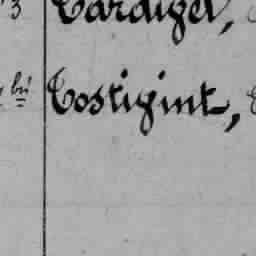 3 Cardizet,
bri Costigint,